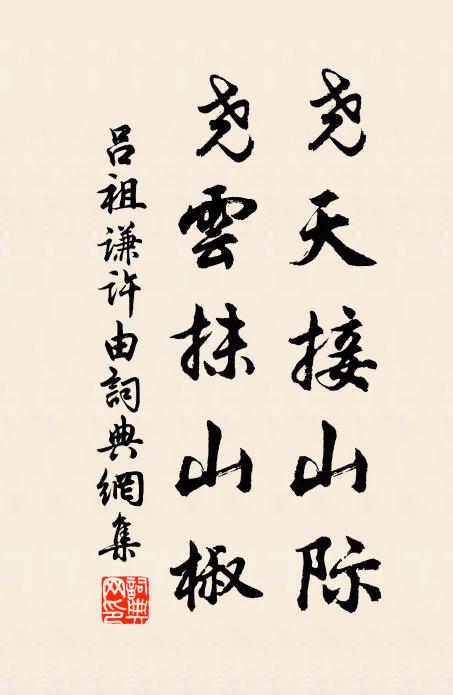 尧天接山际
尧雲抹山椒
呂祖謙许由詞典網集
詞典网印